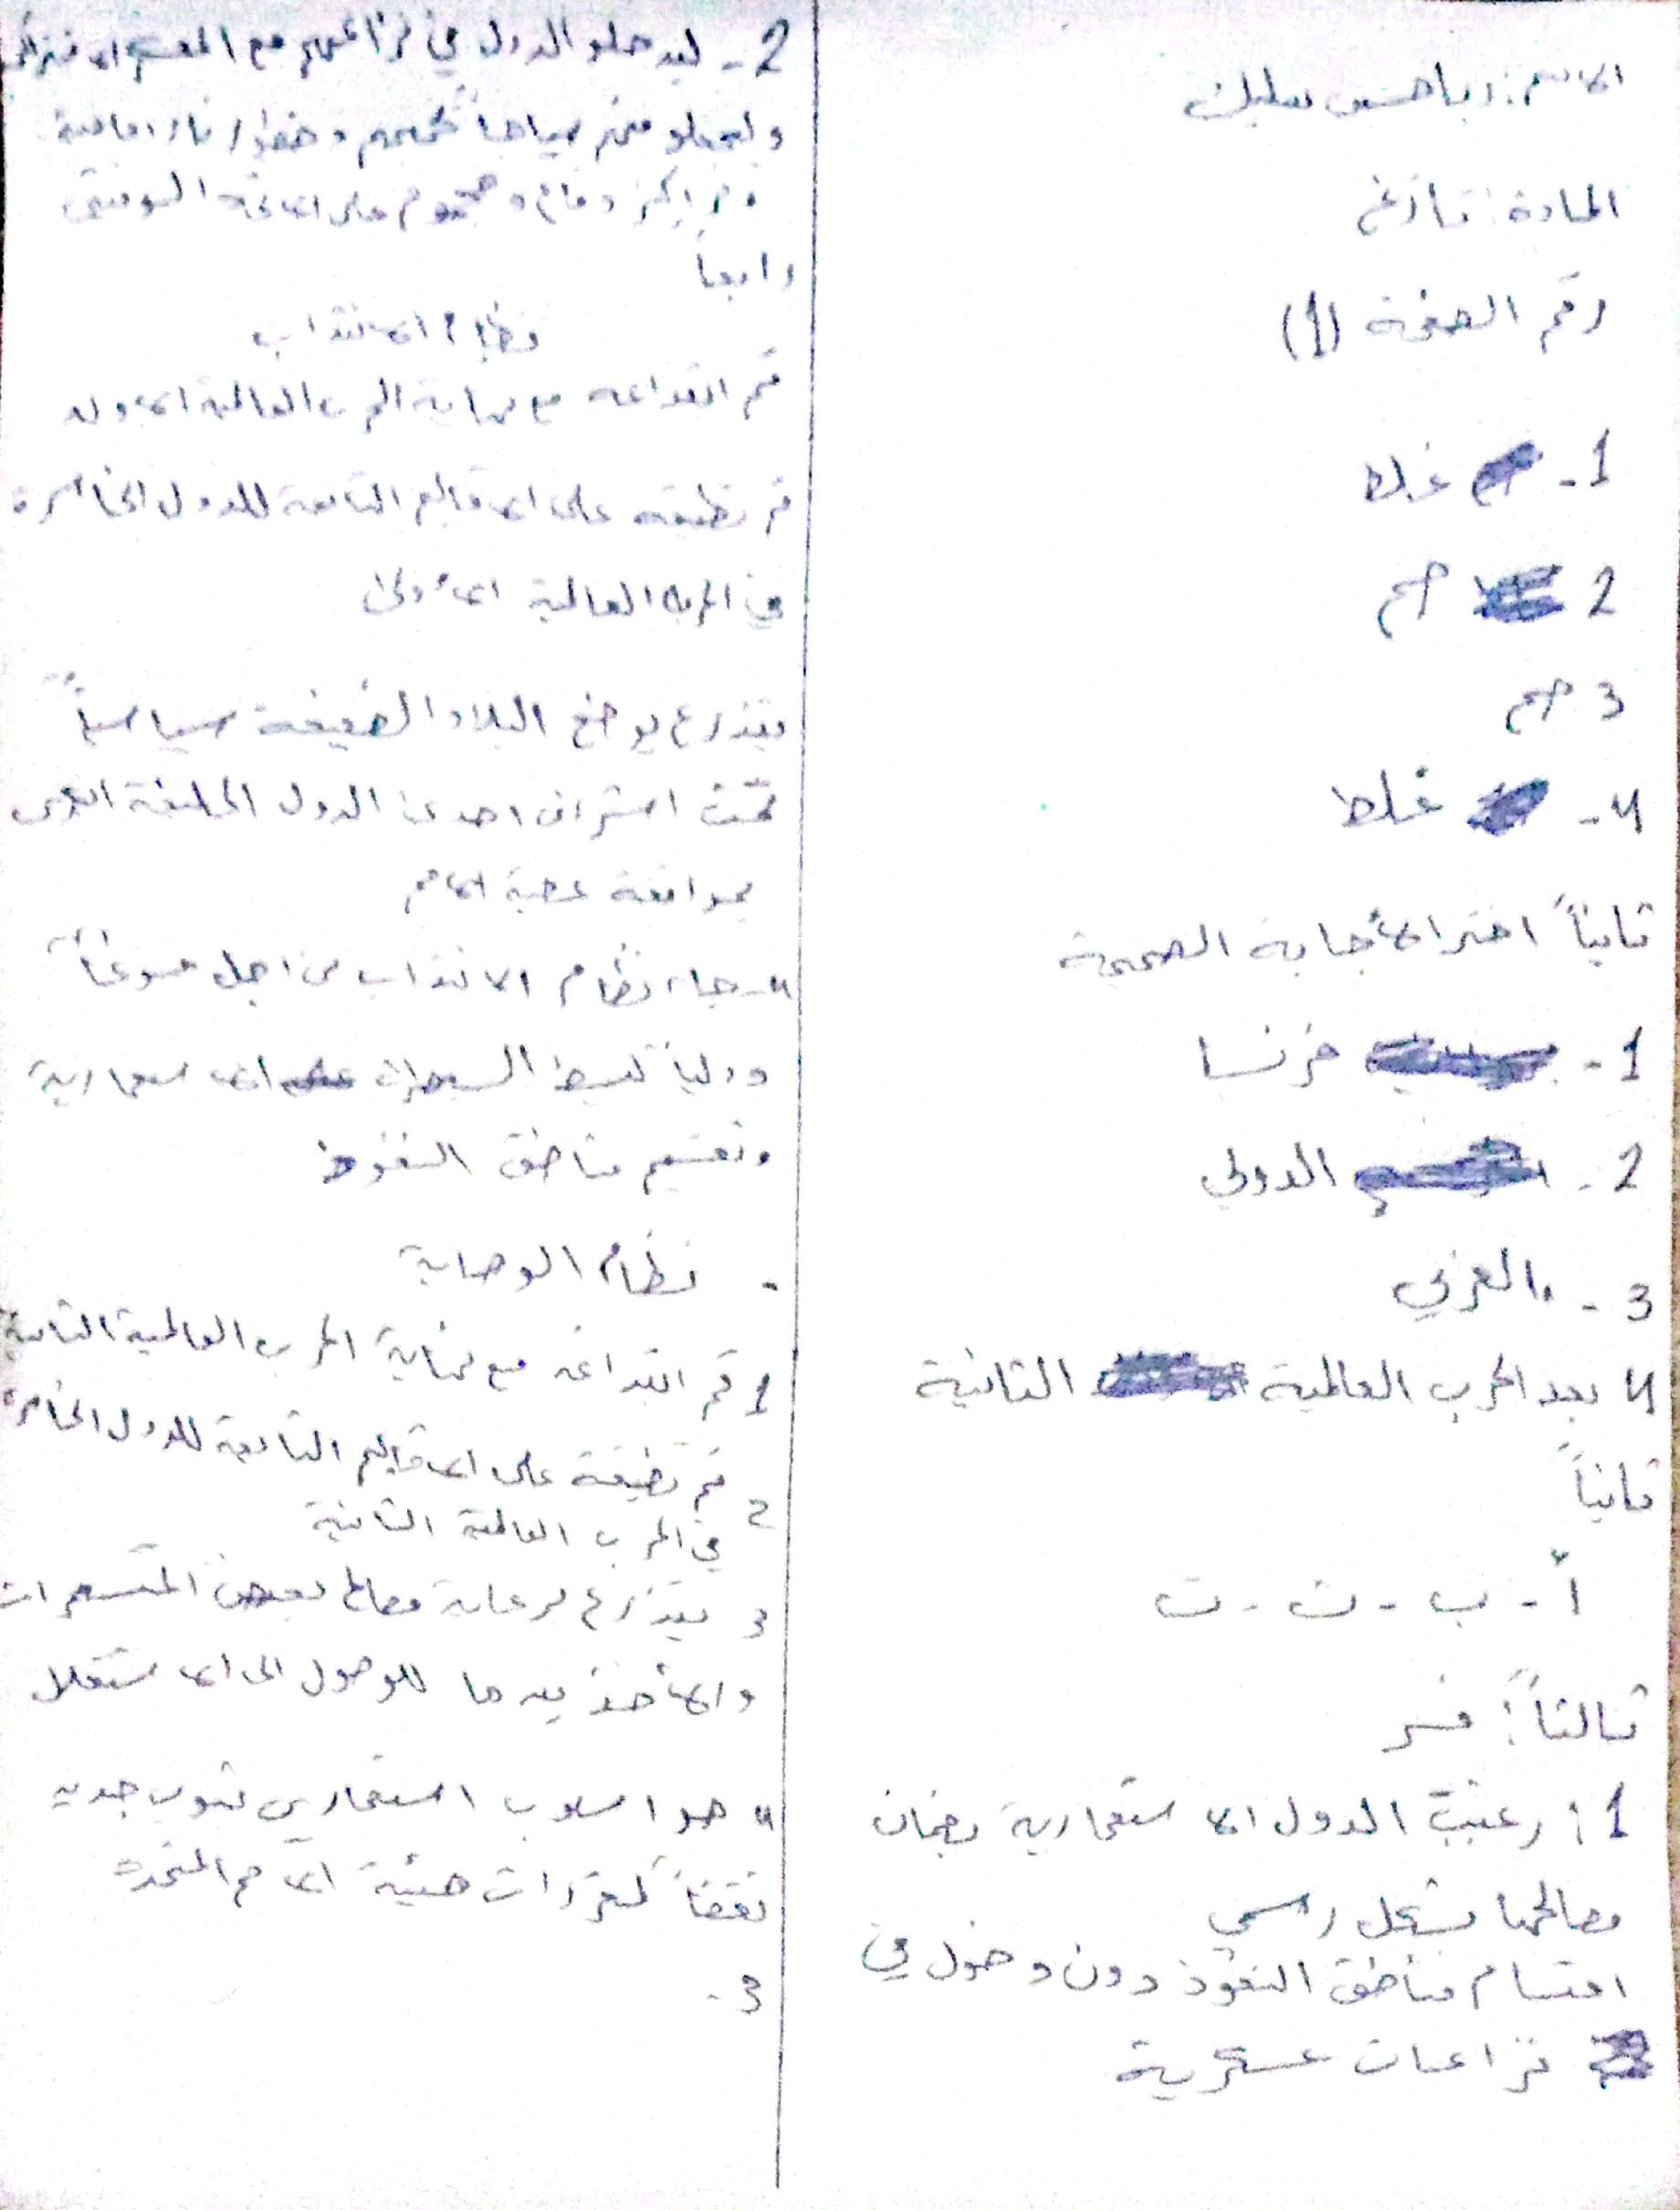 الاسم: ربا حسن
المادة: تاريخ
رقم الصفحة (1)
1- غلط
2 صح
3 صح
4- غلط
ثانياً اختر الأجابة الصحيحة
1- فرنسا
2- الدولي
3- العربي
4 بعد الحرب العالمية الثانية
ثانياً
أ - ب - ت - ت
ثالثاً: فسر
1: رغبت الدول الا ستعمارية بضمان
مصالحها بشكل رسمي
اقتسام مناطق النفوذ دون دخول في
نزاعات عسكرية
2- ليدخلو الدول في نزاعهم مع
وليجعلو منهم سياجاً يحميهم وخطوط نار امامية
ومراكز دفاع وهجوم على
رابعاً
نظام الانتداب
تم ابتداعه مع نهاية الحرب العالمية الاولى
تم تطبيقه على الاقاليم التابعة للدول الخاسرة
في الحرب العالمية الأولى
يتذرع بوضع البلاد الضعيفة سياسياً
تحت اشراف احدى الدول الحليفة
بموافقة عصبة الامم
4- جاء نظام الانتداب من اجل مسوغاً
دولياً لبسط السيطرات الاستعمارية
وتقسيم مناطق النفوذ
- نظام الوصاية
1 تم ابتداعه مع نهاية الحرب العالمية الثانية
2 تم تطبيقه على الاقاليم التابعة للدول الخاسرة
في الحرب العالمية الثانية
3 يتذرع لرعاية مصالح بعض المستعمرات
والأخذ بيدها للوصول الى الاستقلال
4 هو اسلوب استعماري بثوب جديد
نقضاً لمقررات هيئة الامم المتحدة
3-